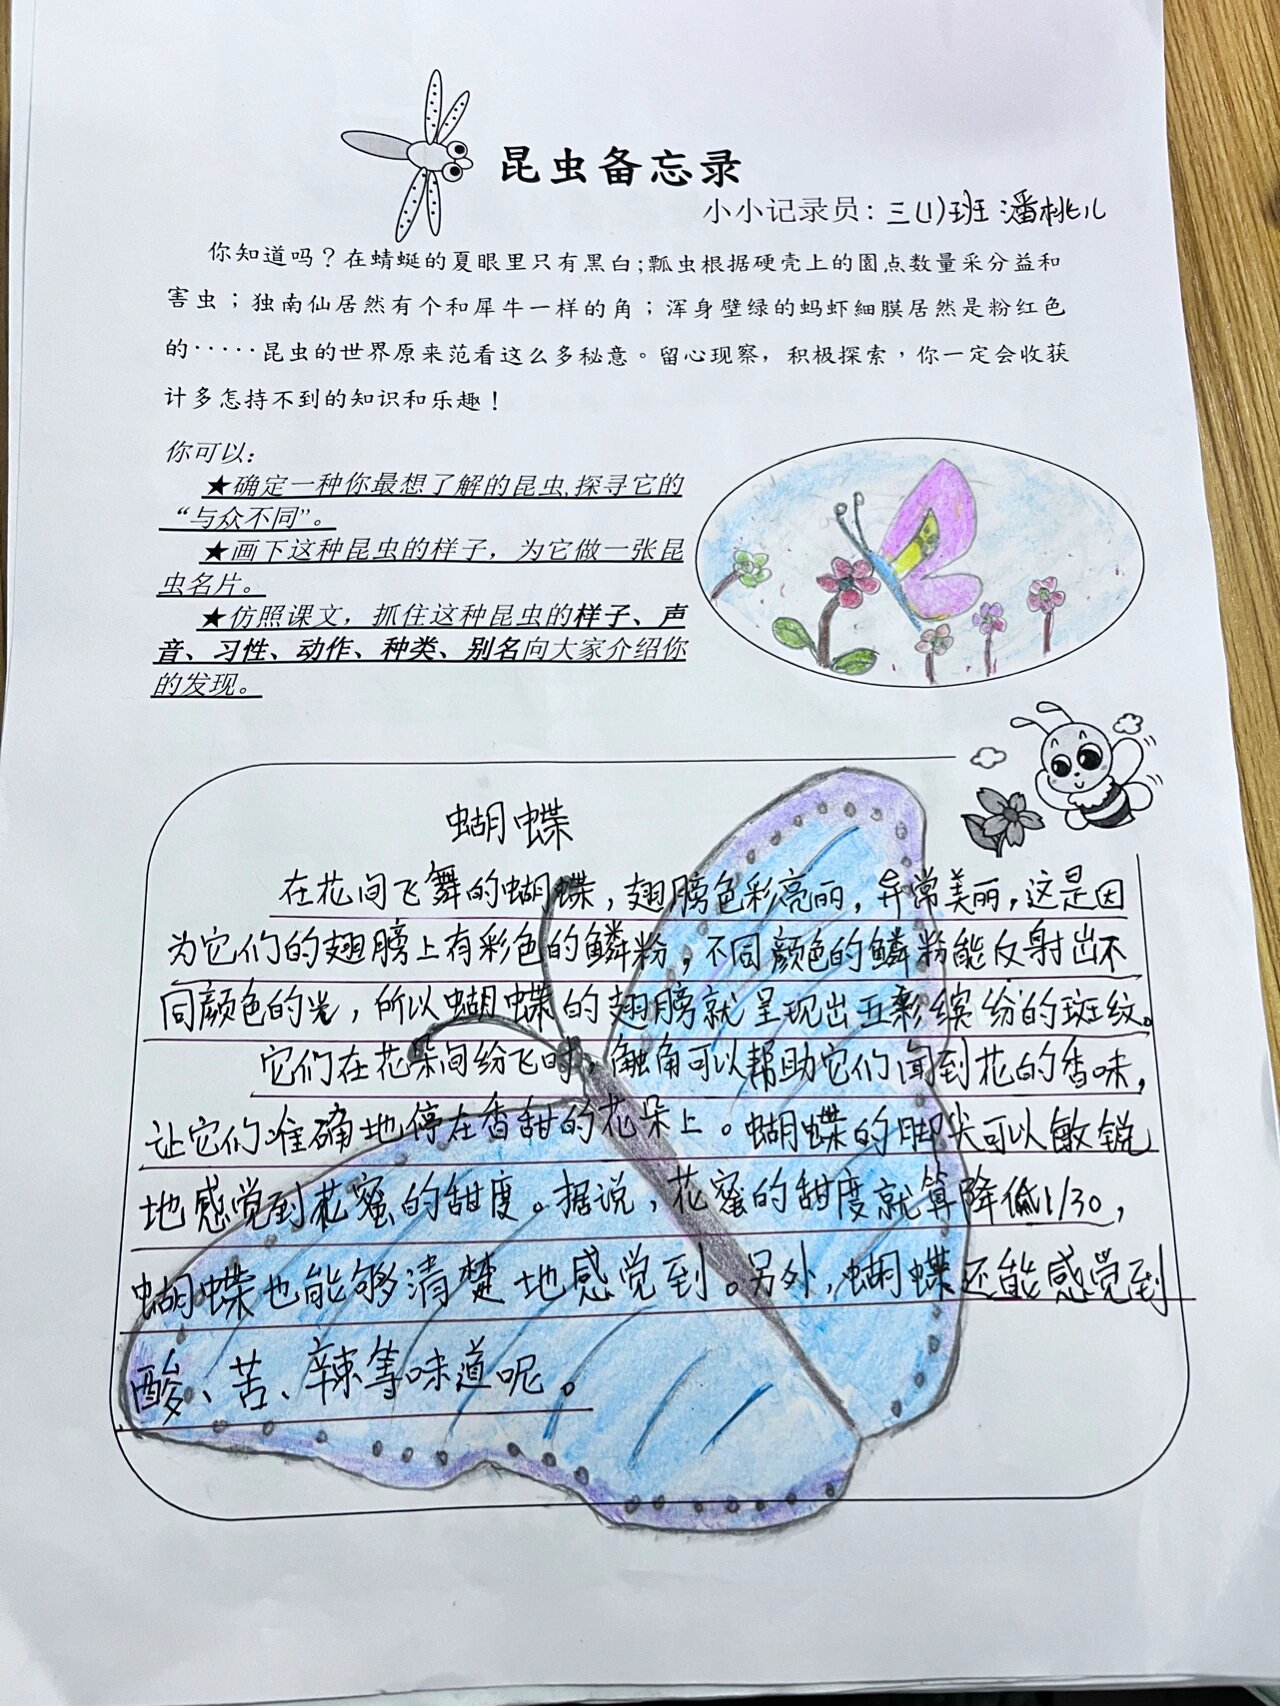 昆虫备忘录
小小记录员：三(1)班 潘桃儿
你知道吗？在蜻蜓的夏眼里只有黑白；瓢虫根据硬壳上的圆点数量采分益和
害虫；独南仙居然有个和犀牛一样的角；浑身壁绿的蚂虾细膜居然是粉红色
的·····昆虫的世界原来范看这么多秘意。留心现察，积极探索，你一定会收获
计多怎持不到的知识和乐趣！
你可以：
★确定一种你最想了解的昆虫,探寻它的
“与众不同”。
★画下这种昆虫的样子，为它做一张昆
虫名片。
★仿照课文，抓住这种昆虫的样子、声
音、习性、动作、种类、别名向大家介绍你
的发现。
蝴蝶
在花间飞舞的蝴蝶，翅膀色彩亮丽，异常美丽，这是因
为它们的翅膀上有彩色的鳞粉，不同颜色的鳞粉能反射出不
同颜色的光，所以蝴蝶的翅膀就呈现出五彩缤纷的斑纹。
它们在花朵间纷飞时，触角可以帮助它们闻到花的香味，
让它们准确地停在香甜的花朵上。蝴蝶的脚尖可以敏锐
地感觉到花蜜的甜度。据说，花蜜的甜度就算降低1/30，
蝴蝶也能够清楚地感觉到。另外，蝴蝶还能感觉到
酸、苦、辣等味道呢。